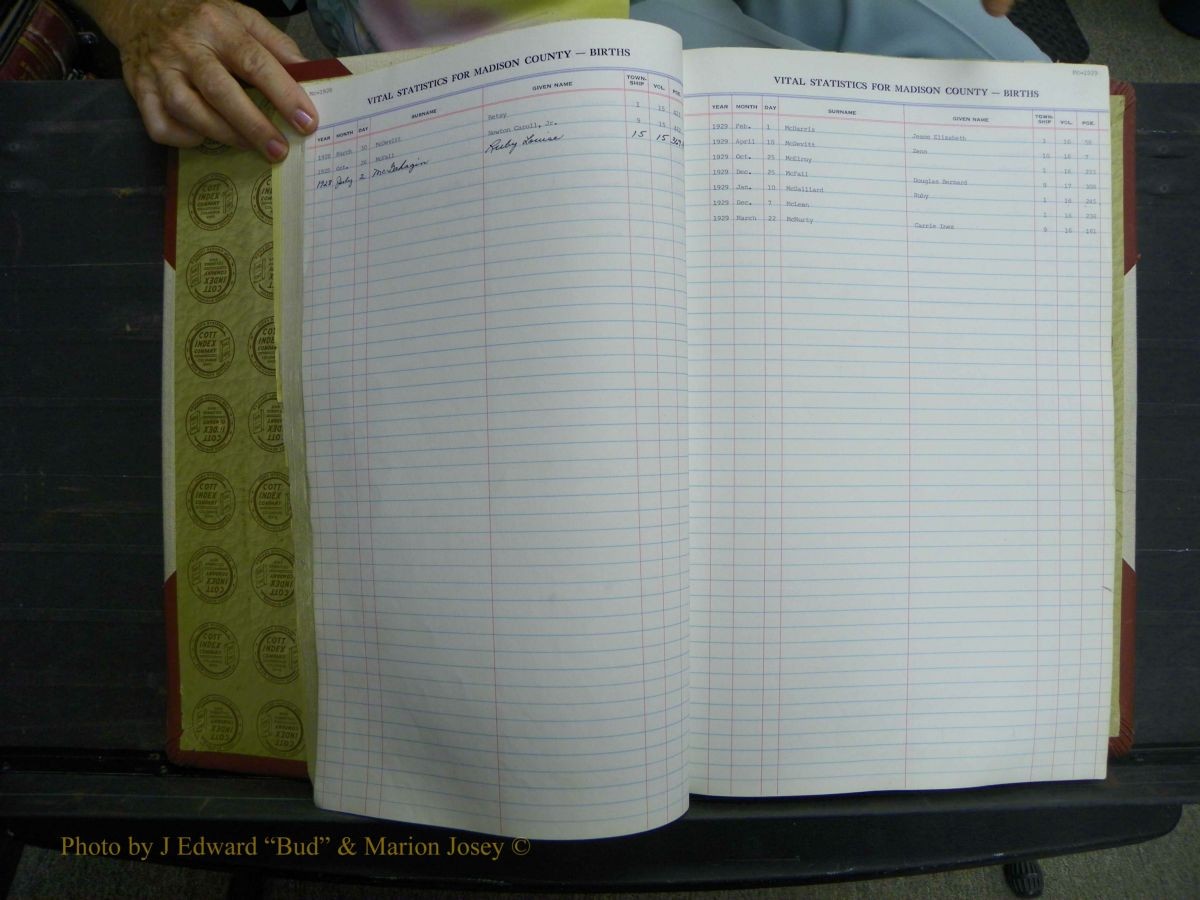 Mc-1928
VITAL STATISTICS FOR MADISON COUNTY — BIRTHS
YEAR MONTH DAY SURNAME GIVEN NAME TOWN-SHIP VOL. PGE.
1928 March 10 McDevitt Betsy 1 15 421
1928 Oct. 26 McFall Newton Caroll, Jr. 9 15 442
1928 July 2 Ruby Louise 15 15
Mc-1929
VITAL STATISTICS FOR MADISON COUNTY — BIRTHS
YEAR MONTH DAY SURNAME GIVEN NAME TOWN-SHIP VOL. PGE.
1929 Feb. 1 McDarris Jesse Elizabeth 1 16 58
1929 April 18 McDevitt Zenn 16 16 7
1929 Oct. 25 McElroy 1 16 233
1929 Dec. 25 McFall Douglas Bernard 8 17 308
1929 Jan. 10 McGalliard Ruby 1 16 245
1929 Dec. 7 McLean 1 16 230
1929 March 22 McMurty Carrie Inez 9 16 181
COTT INDEX COMPANY
Photo by J Edward “Bud” & Marion Josey ©